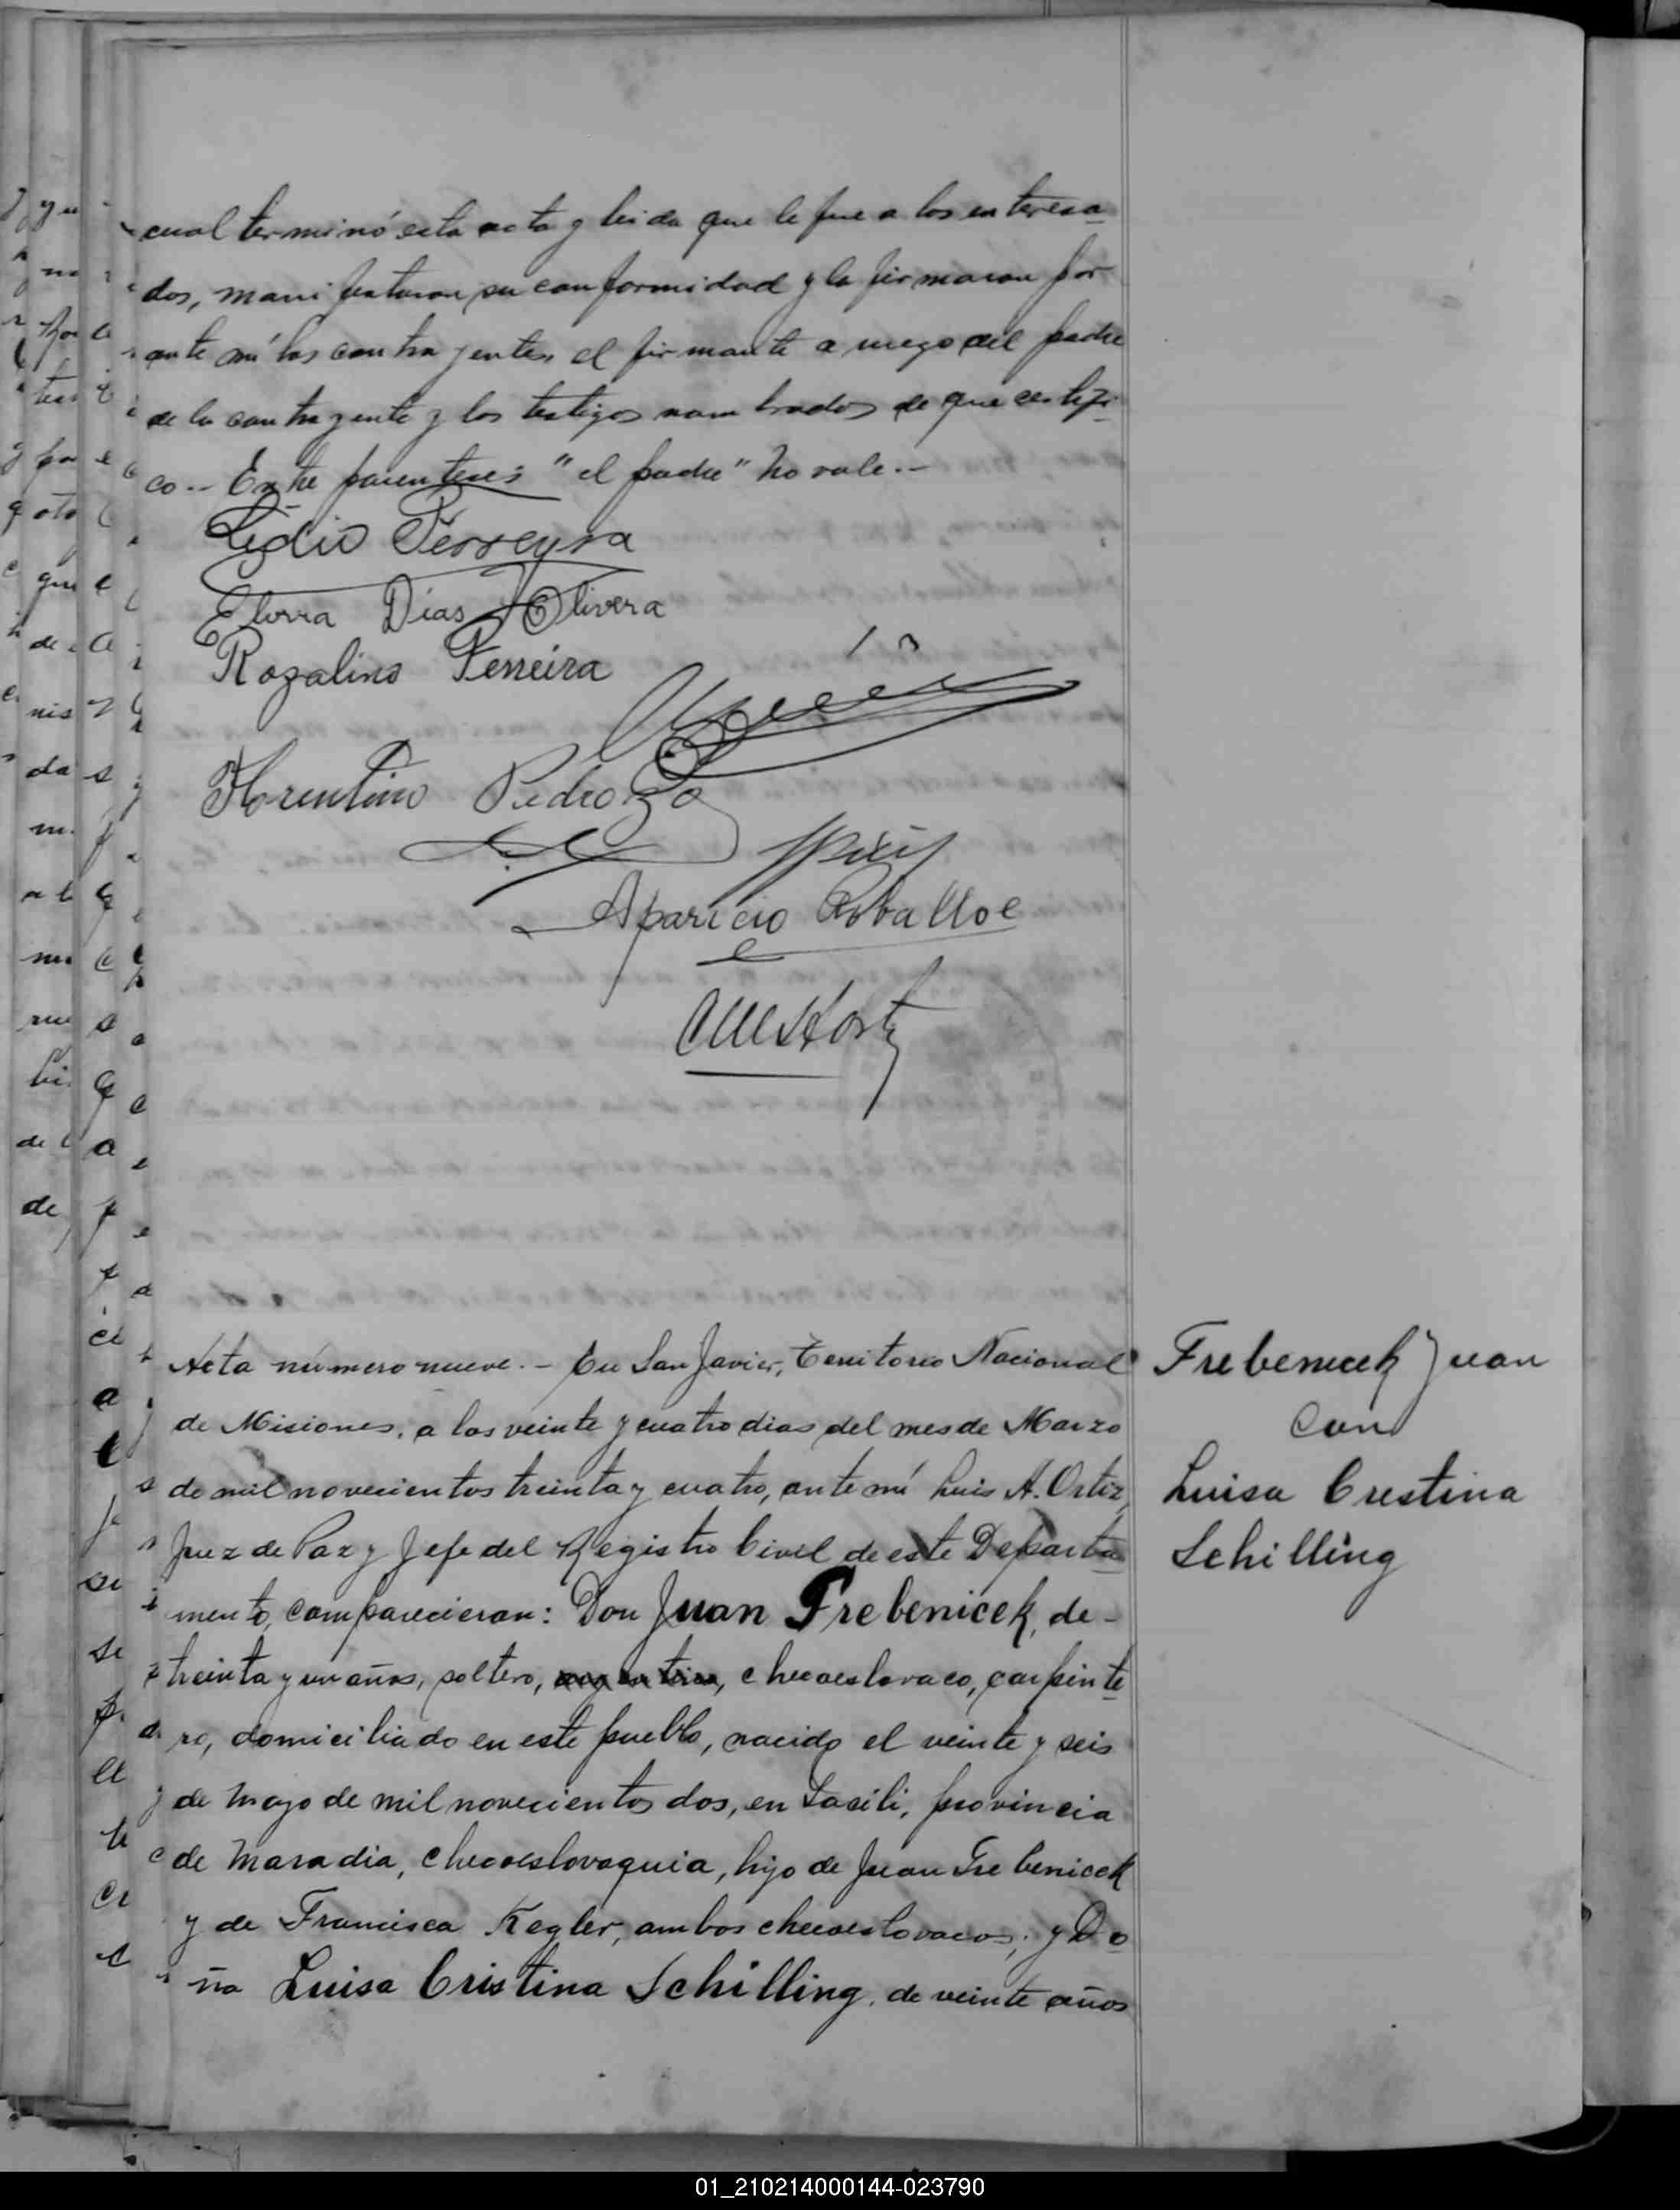 cual terminó esta acta y leida que le fue a los interesa
dos, manifestaron su conformidad y la firmaron por
ante mí los contrayentes, el firmante a ruego del padre
de la contrayente y los testigos nombrados de que certifi
co.- Entre parentesis "el padre" No vale.-
Lidio Ferreyra
Elorra Días Olivera
Rozalino Ferreira
Florentino Pedrozo
Aparicio Roballo
Acta número nueve.- En San Javier, Territorio Nacional
de Misiones, a los veinte y cuatro dias del mes de Marzo
de mil novecientos treinta y cuatro, ante mí Luis A. Ortiz,
Juez de Paz y Jefe del Registro Civil de este Departa
mento, comparecieron: Don Juan Frebenicek, de-
treinta y un años, soltero, argentino, checoeslovaco, carpinte
ro, domiciliado en este pueblo, nacido el veinte y seis
de Mayo de mil novecientos dos, en Sasili, provincia
de Maradia, checoeslovaquia, hijo de Juan Frebenicek
y de Francisca Kegler, ambos checoeslovacos; y Do
ña Luisa Cristina Schilling, de veinte años
Frebenicek Juan
con
Luisa Crestina
Schilling
01_210214000144-023790